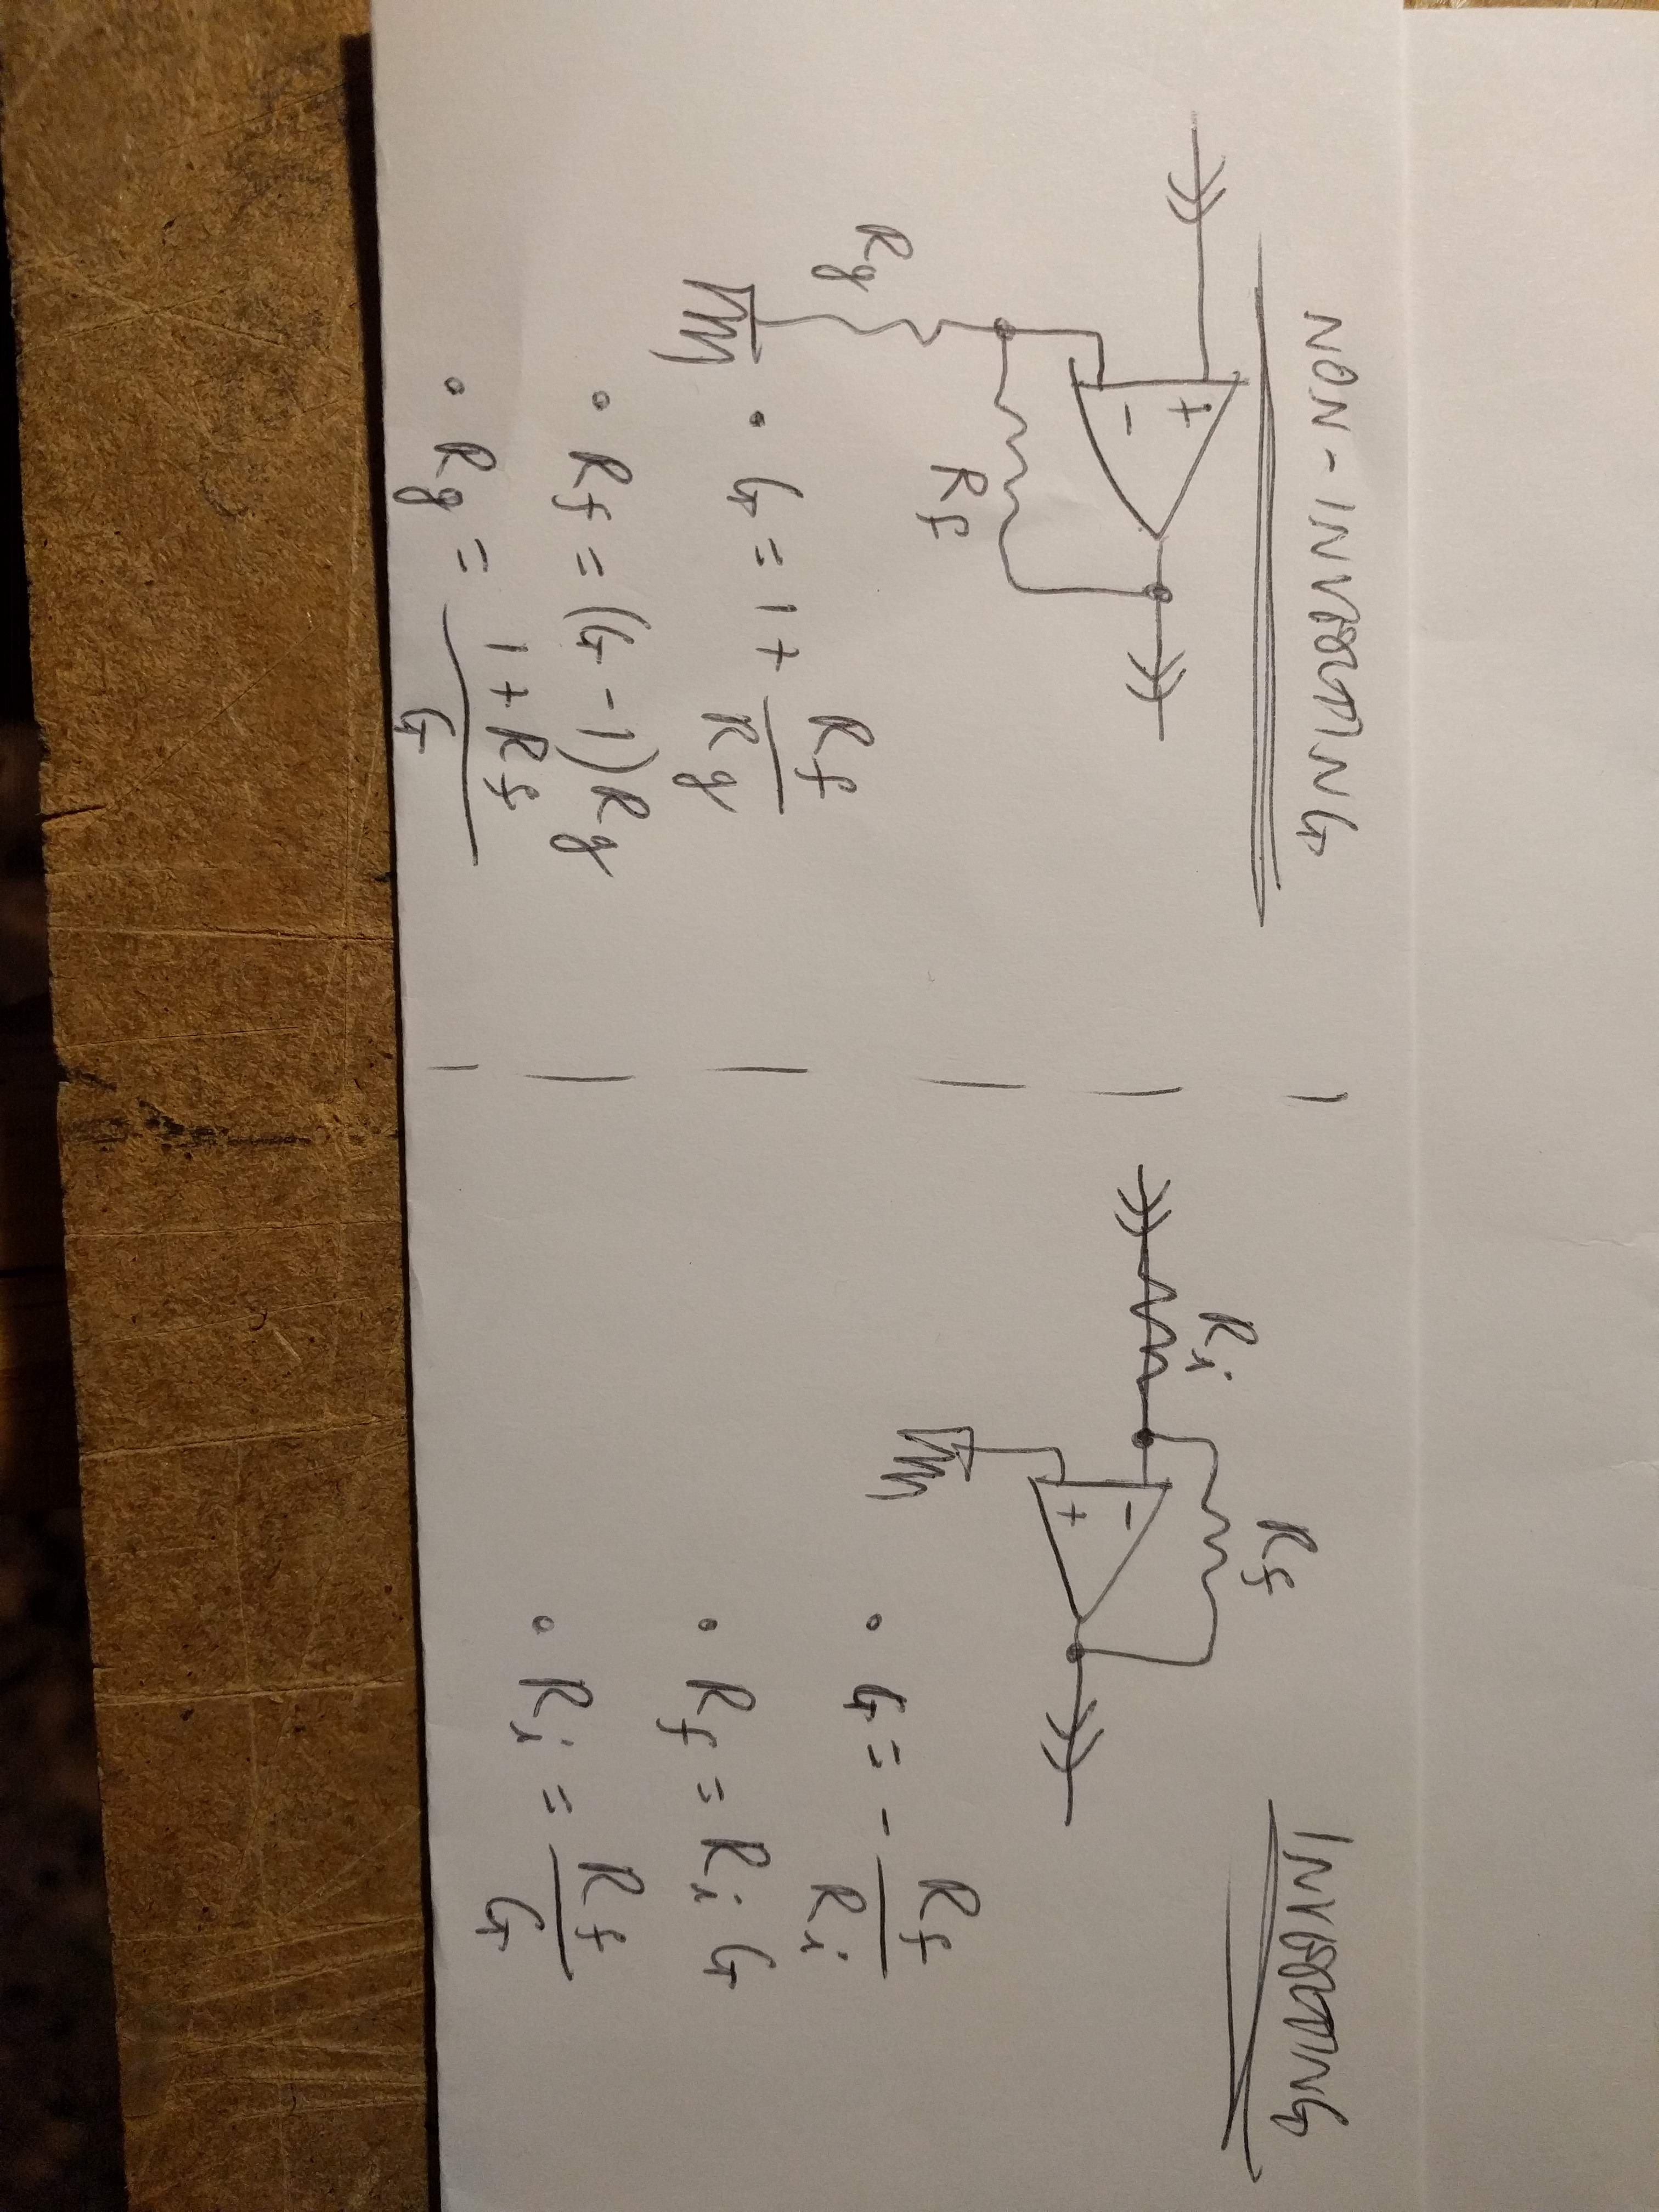 NON-INVERTING
+
-
Rf
Rg
• G = 1 + Rf / Rg
• Rf = (G - 1) Rg
• Rg = 1 + Rf / G
INVERTING
Rf
Ri
-
+
• G = - Rf / Ri
• Rf = Ri G
• Ri = Rf / G